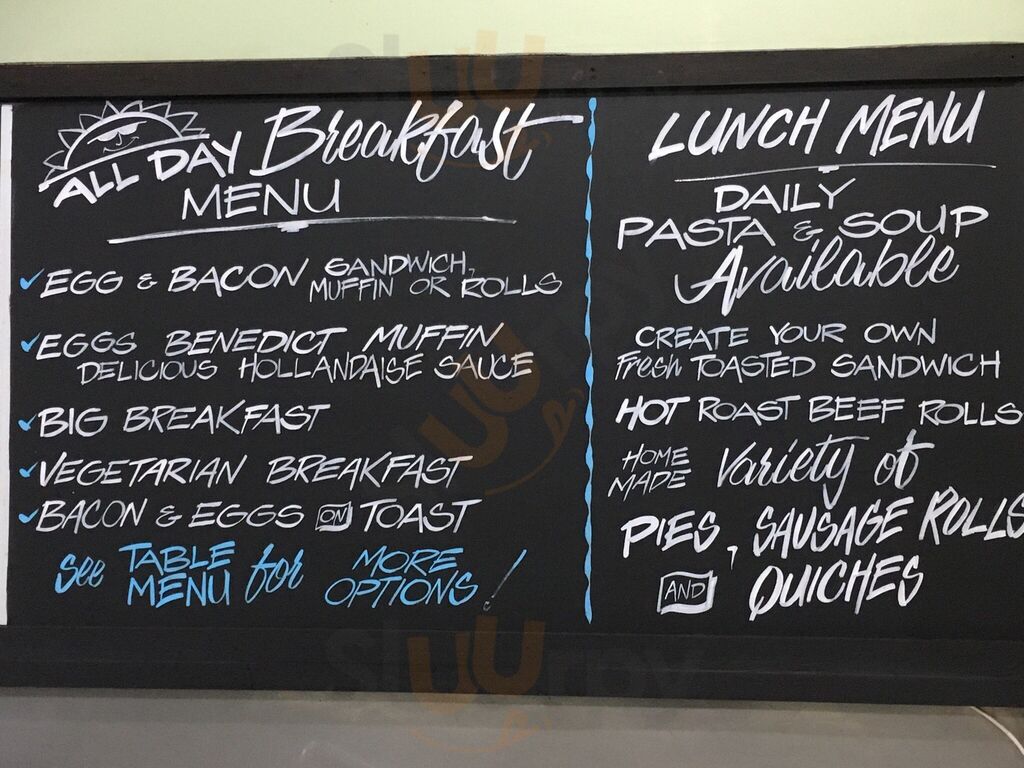 ALL DAY Breakfast
MENU
EGG & BACON SANDWICH,
MUFFIN OR ROLLS
EGGS BENEDICT MUFFIN
DELICIOUS HOLLANDAISE SAUCE
BIG BREAKFAST
VEGETARIAN BREAKFAST
BACON & EGGS ON TOAST
See TABLE MENU for MORE OPTIONS!
LUNCH MENU
DAILY
PASTA & SOUP
Available
CREATE YOUR OWN
Fresh TOASTED SANDWICH
HOT ROAST BEEF ROLLS
HOME MADE Variety of
PIES, SAUSAGE ROLLS
AND QUICHES